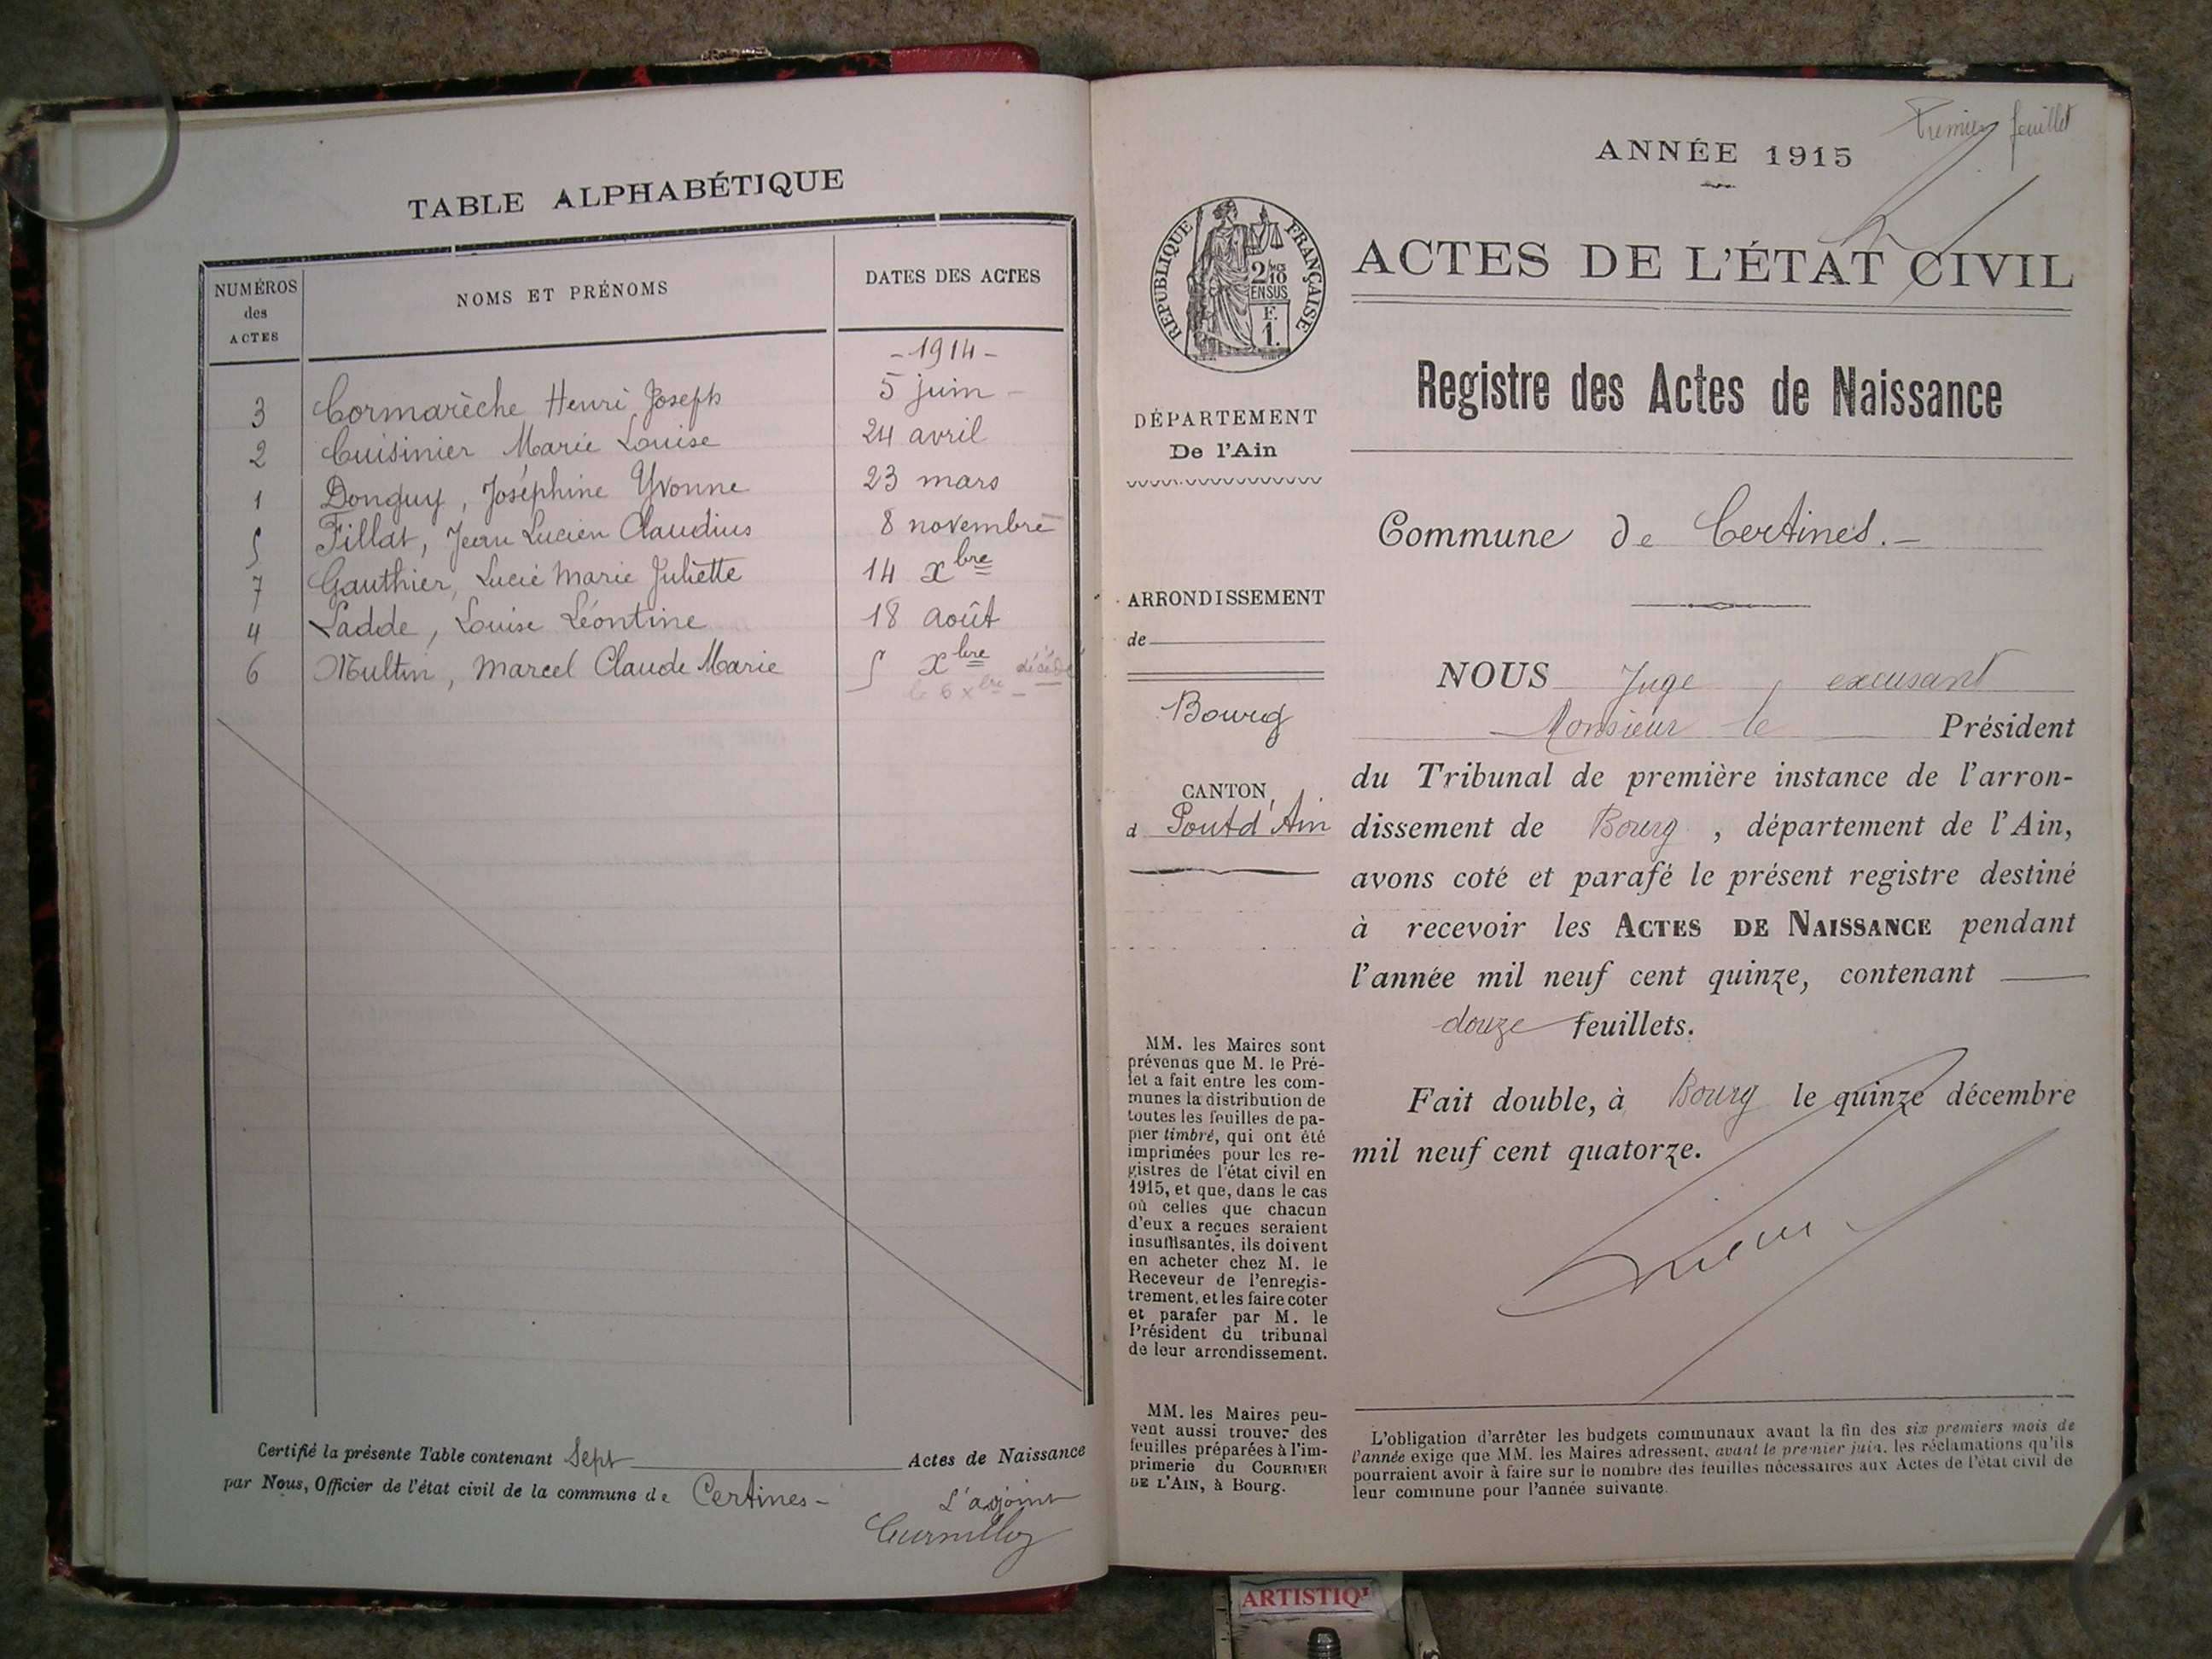 TABLE ALPHABÉTIQUE
NUMÉROS des ACTES
NOMS ET PRÉNOMS
DATES DES ACTES
- 1914 -
3 Cormarèche Henri Joseph 5 juin -
2 Cuisinier Marie Louise 24 avril
1 Donguy, Joséphine Yvonne 23 mars
5 Fillat, Jean Lucien Claudius 8 novembre
7 Gauthier, Lucie Marie Juliette 14 xbre
4 Ladde, Louise Léontine 18 août
6 Multin, Marcel Claude Marie 5 xbre décédé
le 6 xbre -
Certifié la présente Table contenant Sept Actes de Naissance
par Nous, Officier de l'état civil de la commune de Certines -
L'adjoint
Premier feuillet
ANNÉE 1915
RÉPUBLIQUE FRANÇAISE
2/10
EN SUS
F.
1.
ACTES DE L'ÉTAT CIVIL
Registre des Actes de Naissance
DÉPARTEMENT
De l'Ain
Commune de Certines. -
ARRONDISSEMENT
de
Bourg
CANTON
d Pont d'Ain
NOUS Juge, excusant
Monsieur le Président
du Tribunal de première instance de l'arron-
dissement de Bourg, département de l'Ain,
avons coté et parafé le présent registre destiné
à recevoir les ACTES DE NAISSANCE pendant
l'année mil neuf cent quinze, contenant
douze feuillets.
Fait double, à Bourg le quinze décembre
mil neuf cent quatorze.
MM. les Maires sont
prévenus que M. le Pré-
fet a fait entre les com-
munes la distribution de
toutes les feuilles de pa-
pier timbré, qui ont été
imprimées pour les re-
gistres de l'état civil en
1915, et que, dans le cas
où celles que chacun
d'eux a reçues seraient
insuffisantes, ils doivent
en acheter chez M. le
Receveur de l'enregis-
trement, et les faire coter
et parafer par M. le
Président du tribunal
de leur arrondissement.
MM. les Maires peu-
vent aussi trouver des
feuilles préparées à l'im-
primerie du COURRIER
DE L'AIN, à Bourg.
L'obligation d'arrêter les budgets communaux avant la fin des six premiers mois de
l'année exige que MM. les Maires adressent, avant le premier juin, les réclamations qu'ils
pourraient avoir à faire sur le nombre des feuilles nécessaires aux Actes de l'état civil de
leur commune pour l'année suivante.
ARTISTIQ